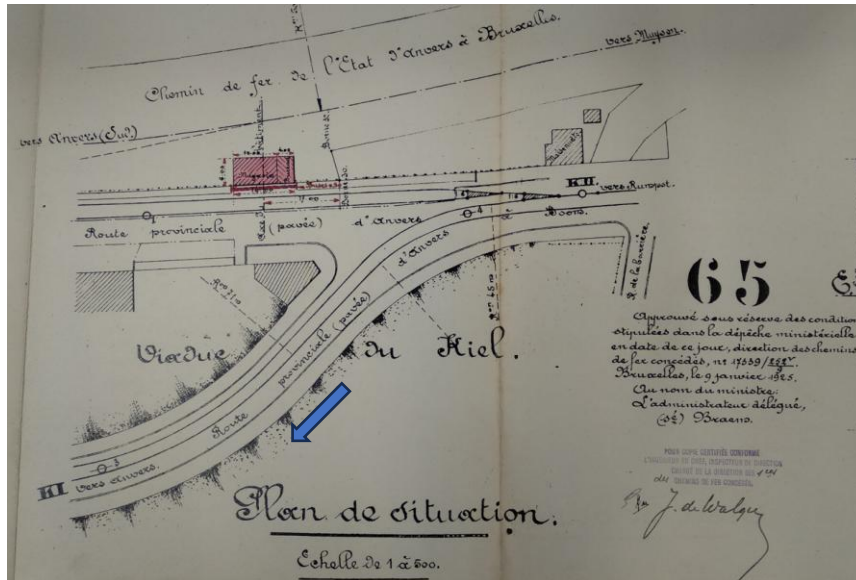 Chemin de fer de l'Etat d'Anvers à Bruxelles.
vers Muysen.
vers Anvers (Sud.)
Bâtiment
17.00
KII.
vers Rumpst.
Route provinciale (pavée) d'Anvers
Boom.
Route provinciale (pavée) d'Anvers
R. de la barrière.
Viaduc du Kiel.
KI
vers Anvers.
3
4
65
Approuvé sous réserve des condition
stipulées dans la dépêche ministérielle
en date de ce jour, direction des chemins
de fer concédés, nr 17559/252v.
Bruxelles, le 9 janvier 1925.
Au nom du ministre:
L'administrateur délégué,
(sé) Braem.
POUR COPIE CERTIFIÉE CONFORME
CHEMINS DE FER CONCÉDÉS.
J. de Walque
Plan de situation.
Echelle de 1 à 500.